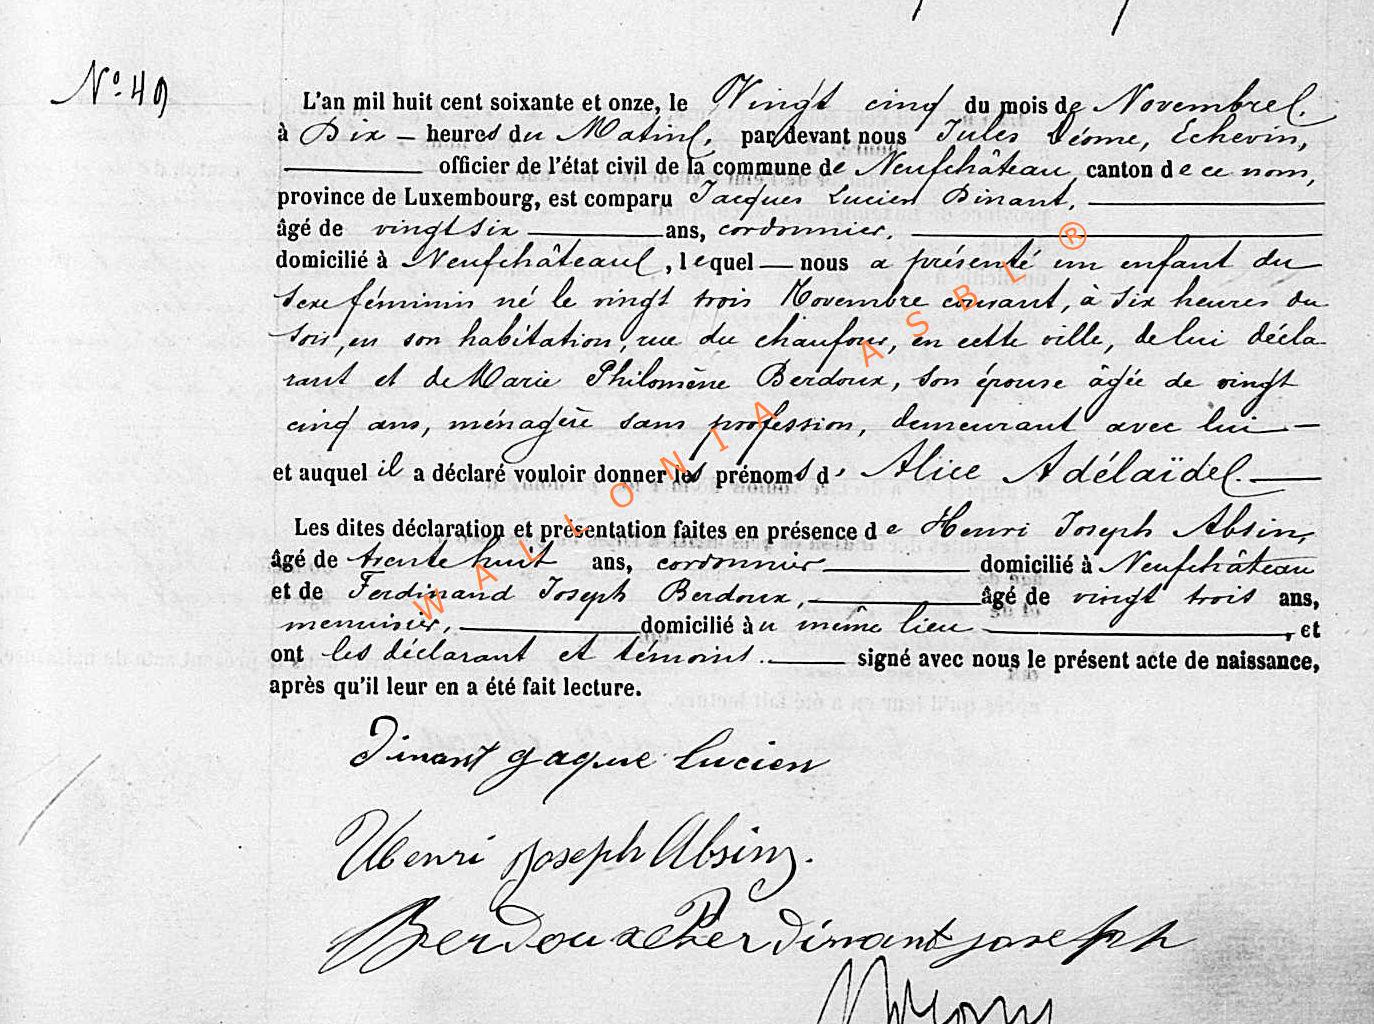 N° 49
L'an mil huit cent soixante et onze, le Vingt cinq du mois de Novembre.
à Dix - heures du Matin, par devant nous Jules Léome, Echevin,
officier de l'état civil de la commune de Neufchâteau, canton de ce nom,
province de Luxembourg, est comparu Jacques Lucien Dinant,
âgé de vingt six ans, cordonnier,
domicilié à Neufchâteau, lequel nous a présenté un enfant du
sexe féminin né le vingt trois Novembre courant, à six heures du
soir, en son habitation, rue du chaufour, en cette ville, de lui décla-
rant et de Marie Philomène Berdoux, son épouse âgée de vingt
cinq ans, ménagère sans profession, demeurant avec lui
et auquel il a déclaré vouloir donner les prénoms d' Alice Adélaïde.
Les dites déclaration et présentation faites en présence de Henri Joseph Absin,
âgé de trente huit ans, cordonnier domicilié à Neufchâteau
et de Ferdinand Joseph Berdoux, âgé de vingt trois ans,
menuisier, domicilié au même lieu , et
ont les déclarant et témoins. signé avec nous le présent acte de naissance,
après qu'il leur en a été fait lecture.
Dinant Jaque Lucien
Henri Joseph Absin.
Berdoux Pherdinant joseph
WALLONIA ASBL ®